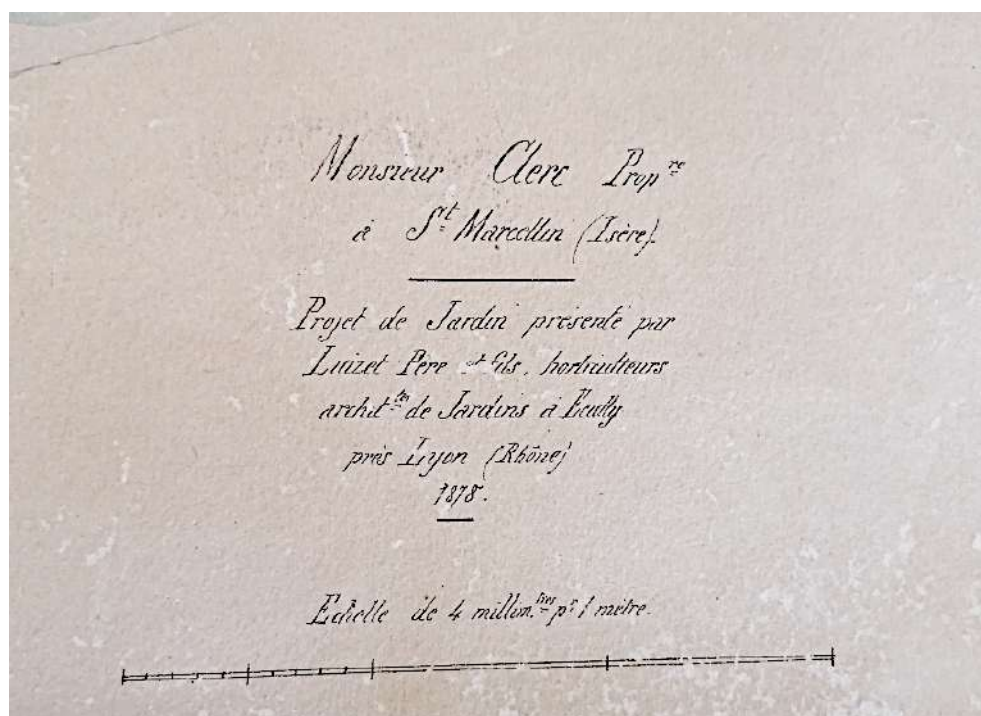 Monsieur Clerc Propre
à St Marcellin (Isère).
Projet de Jardin présenté par
Luizet Père et fils, horticulteurs
archittes de Jardins à Ecully
près Lyon (Rhône)
1878.
Echelle de 4 millim.tres pr 1 mètre.